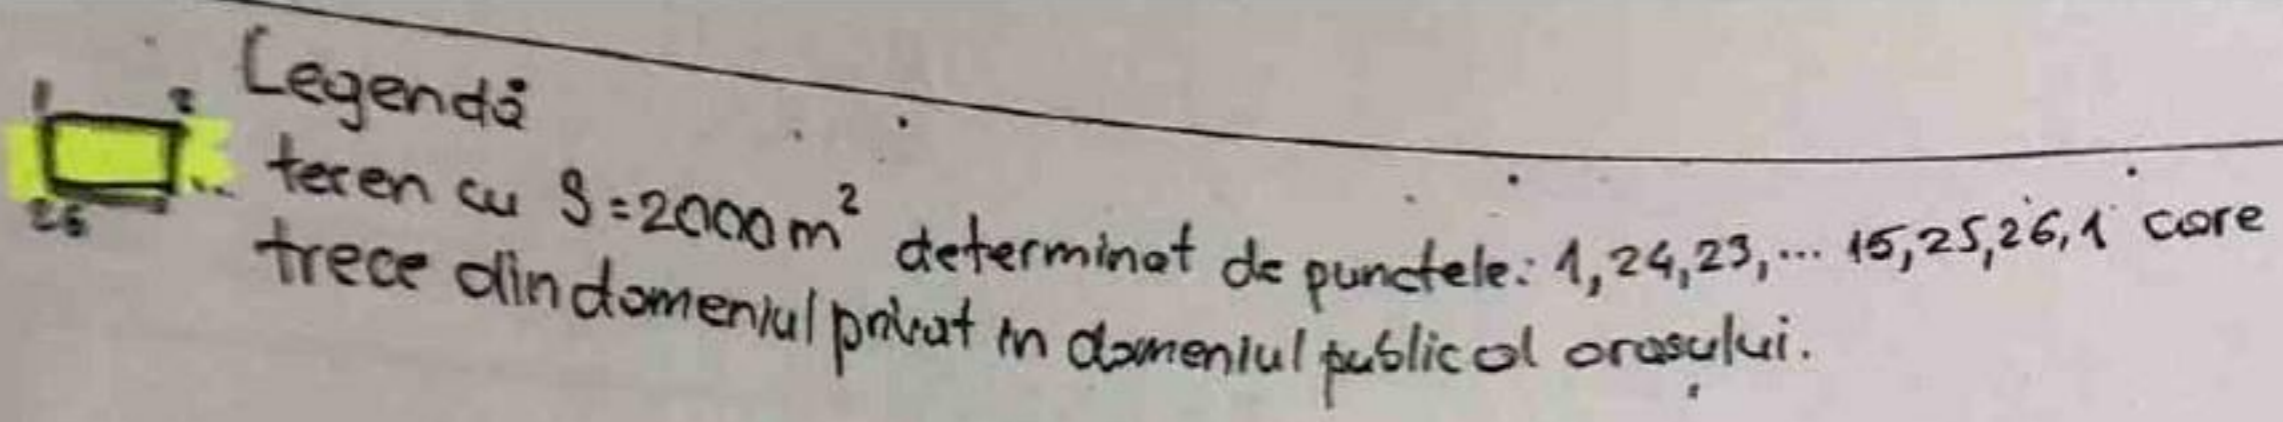 Legendă
1 2
26 ..
teren cu S=2000m² determinat de punctele: 1,24,23,... 15,25,26,1 care
trece din domeniul privat in domeniul public al orașului.